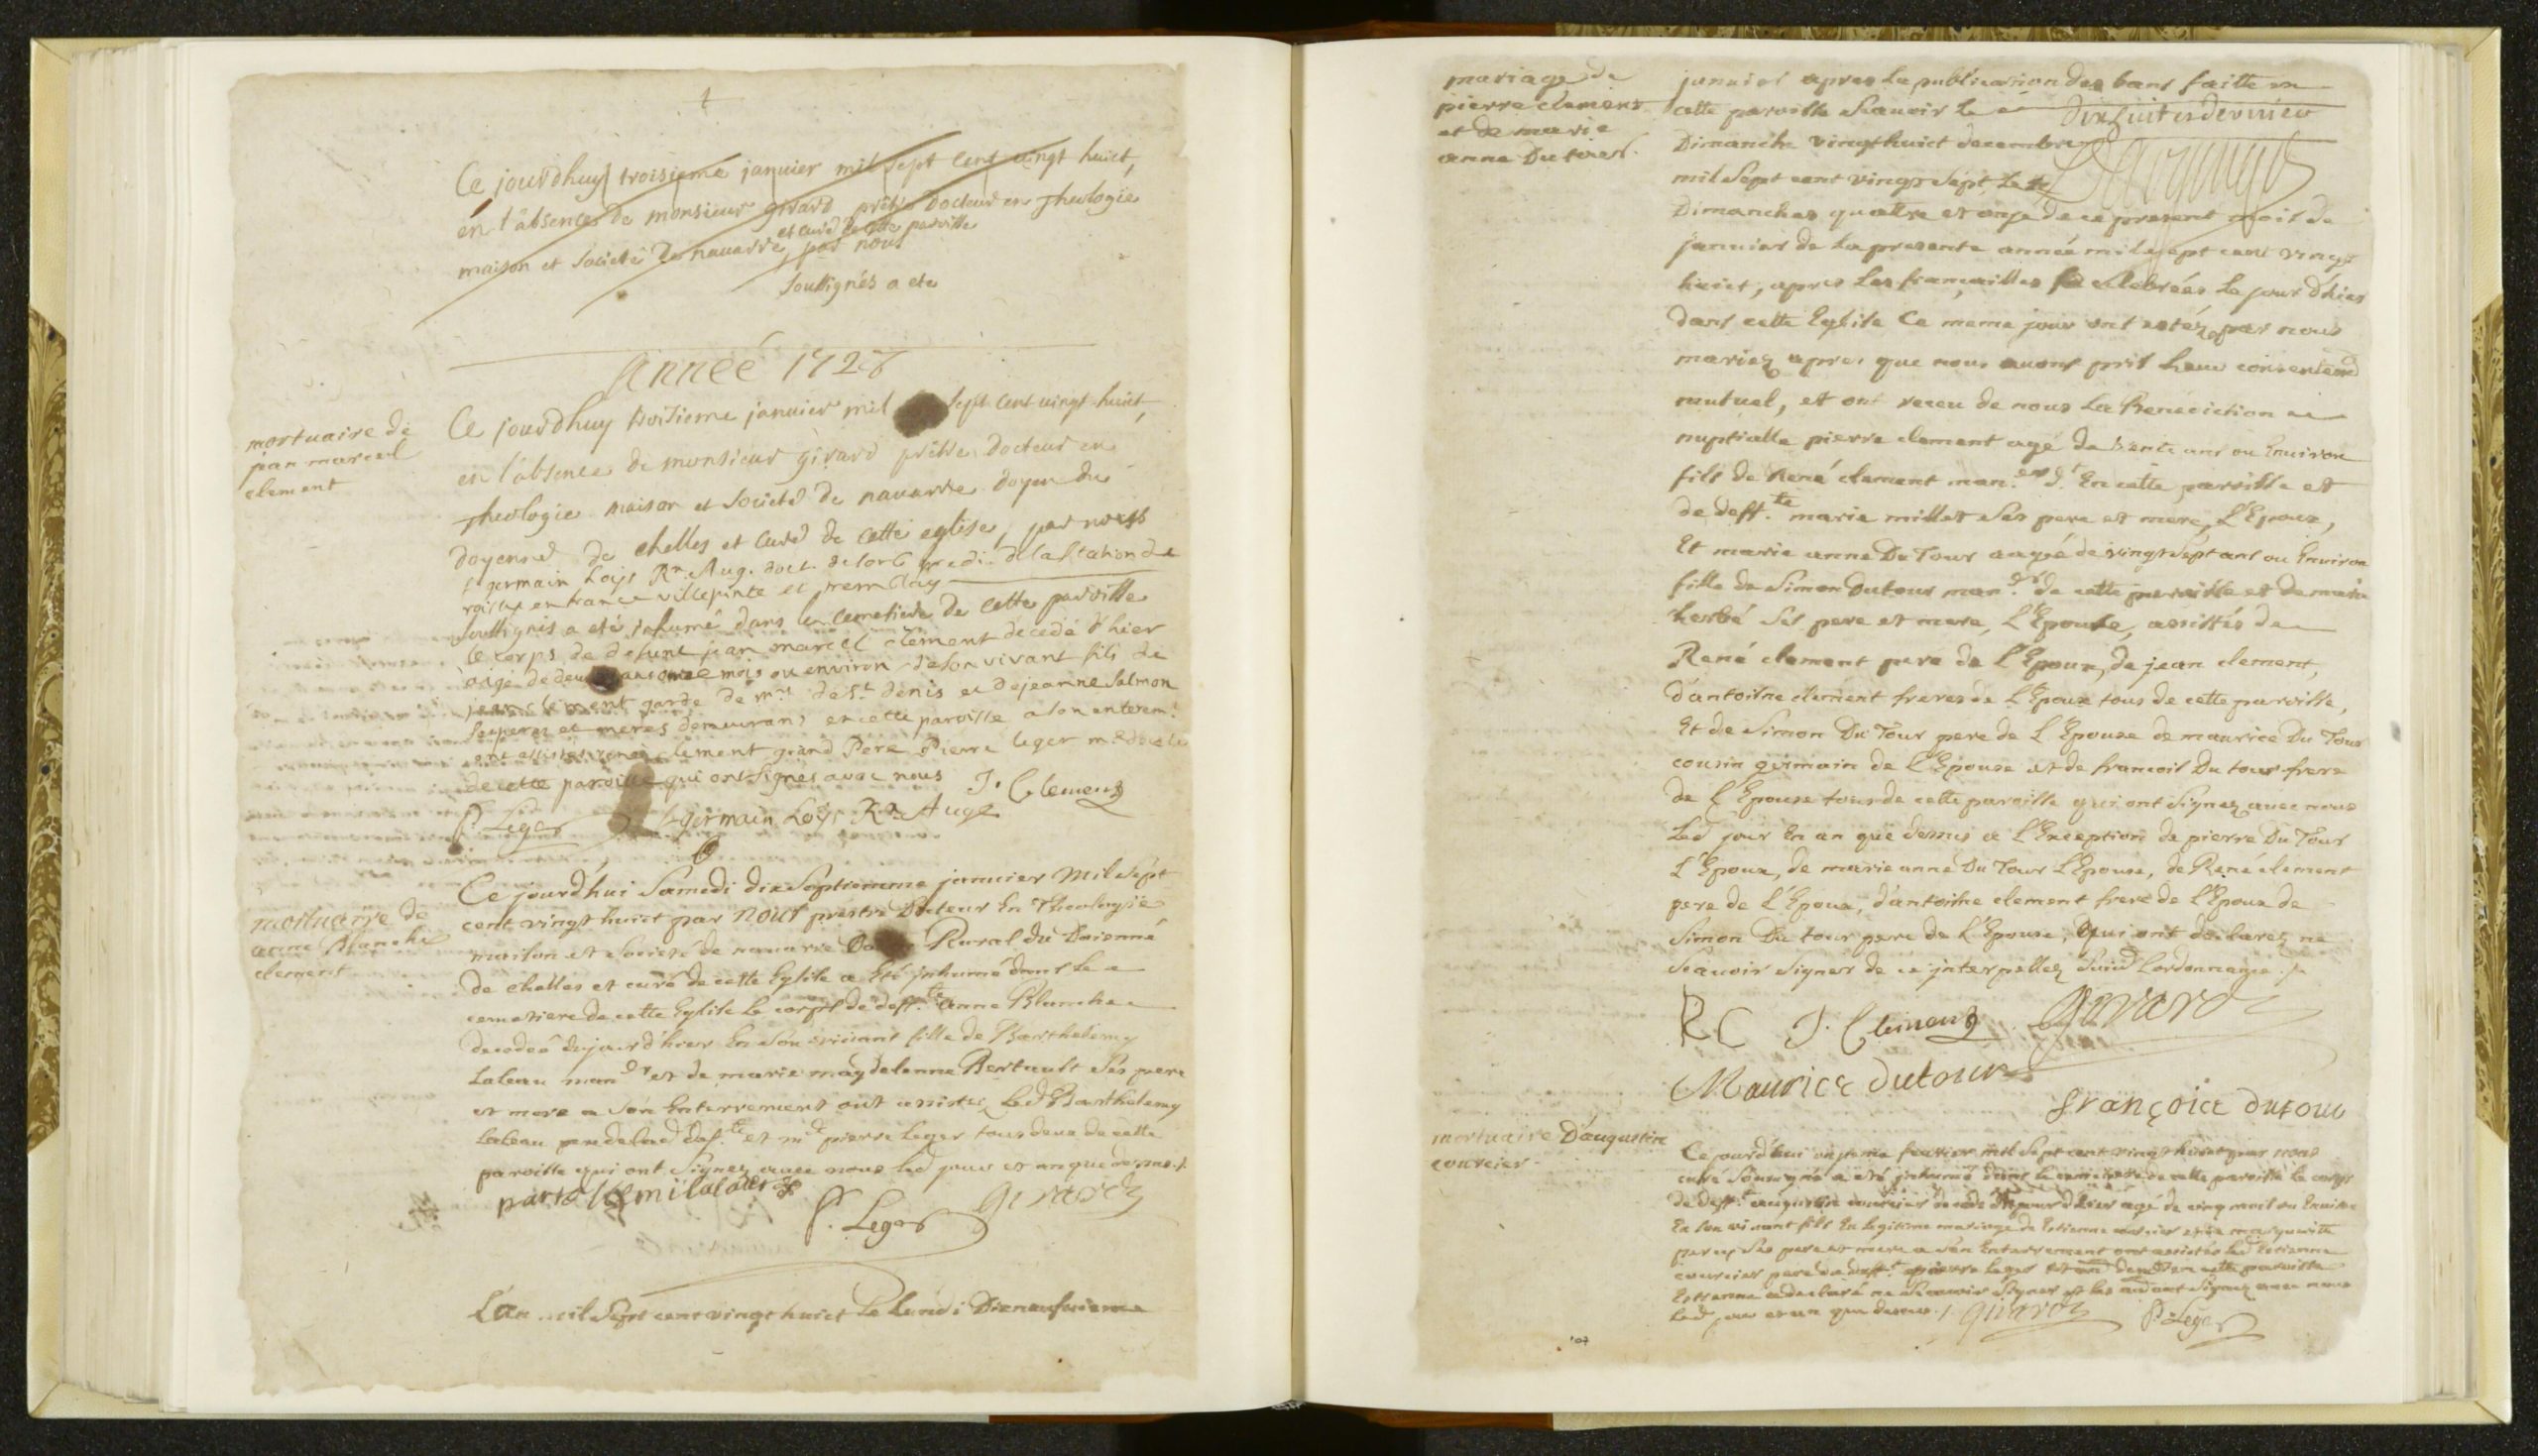 Ce jourdhuy troisieme januier mil sept cent vingt huict,
én l'absence de monsieur girard prêtre Docteur en Theologie
et curé de cette paroisse
maison et societé de nauarre, par nous
souttignés a ete
Année 1728
mortuaire de
jean marcel
clement
Ce jourdhuy troisieme januier mil sept cent vingt-huict,
en l'absence de monsieur girard prêtre Docteur en
Theologie maison et societé de nauarre doyen du
doyenné de chelles et curé de cette eglise, par nous
f. germain Loijs Rn. Aug. doct. de sorb predi. de la station de
roissy en france villepinte et tremblay
souttignés a eté inhumé dans le cemetiere de cette paroisse
le corps de defunt jean marcel clement decedé d'hier
âgé de deux ans onze mois ou environ de son vivant fils de
jean clement garde de mrs de St denis et de jeanne Salmon
ses peres et meres demeurans en cette paroisse a son enterem.t
ont assisté rené clement grand Pere Pierre leger
de cette paroisse qui ont signés avec nous J. Clement
P. Leger f germain Loijs Rn Aug
mortuaire de
anne Blanche
clement
Ce jourd'hui Samedi dix Septiemme januier Mil Sept
cent vingt huict par nous prestre Docteur En Theologie
maison et Societé de nauarre Rural du Doienné
de chelles et curé de cette Eglise a Eté jnhumé dans le
cemetiere de cette Eglise le corps de deff.te anne Blanche
decedeé dujourd'hier En son vivant fille de Barthelemy
Laleau man.dr et de marie magdelenne Bertault ses pere
et mere a son Enterrement ont assistez led Barthelemy
Laleau pere de lad def.te et m.e pierre Leger tous deux de cette
paroisse qui ont Signez auec nous led jour et an que dessus ./.
P. Leger girard
L'an mil Sept cent vingt huict le lundi Dixneufuieme
mariage de
pierre clement
et de marie
anne Dutour.
januier apres la publication des bans faitte en
cette paroisse Scauoir le
Dimanche vingt huict decembre
mil Sept cent vingt Sept, les
Dimanches quatre et onze de ce present mois de
januier de la presente année mil sept cent vingt
huict, apres les fiançailles celebrées le jour d'hier
dans cette Eglise Ce meme jour ont estéz par nous
mariez apres que nous auons pris leur consentem.t
mutuel, et ont receu de nous la Benediction
nuptialle pierre clement agé de trente ans ou Enuiron
fils de René clement man. En cette paroisse et
de deff.te marie millet Ses pere et mere, L'Epoux,
Et marie anne Du Tour aagée de vingt Sept ans ou Enuiron
fille de Simon Dutour man.dr de cette paroisse et de marie
herbé Ses pere et mere, L'Epouse, assistés de
René clement pere de L'Epoux, de jean clement,
d'antoine clement freres de L'Epoux tous de cette paroisse,
Et de Simon Du Tour pere de L'Epouse de maurice Du Tour
cousin germain de L'Epouse et de francois Du tour frere
de L'Epouse tous de cette paroisse qui ont Signez auec nous
Led jour En an que dessus a L'Exception de pierre Du Tour
L'Epoux, de marie anne Du Tour L'Epouse, de René clement
pere de L'Epoux, d'antoine clement frere de L'Epoux de
Simon Du tour pere de L'Epouse, Qui ont declarez ne
Scauoir Signer de ce jnterpellez Suiud Lordonnance ./.
RC J. Clement Girard
Maurice dutour
françoice dutour
mortuaire D'augustin
courcier
Ce jourd'hui onzieme feurier mil Sept cent vingt huict par nous
curé Sousigné a eté jnhumé dans le cemetiere de cette paroisse le corps
de deff.t augustin courcier decedé du jour d'hier agé de cinq mois ou Enuiron
En son viuant fils En legitime mariage de Estienne courcier et de marguerite
ses pere et mere a son Enterrement ont assistés led Estienne
courcier pere du deff.t pierre leger de cette paroisse
Estienne a declaré ne Scauoir Signer et les ont Signez auec nous
led jour et an que dessus ./. girard P. Leger